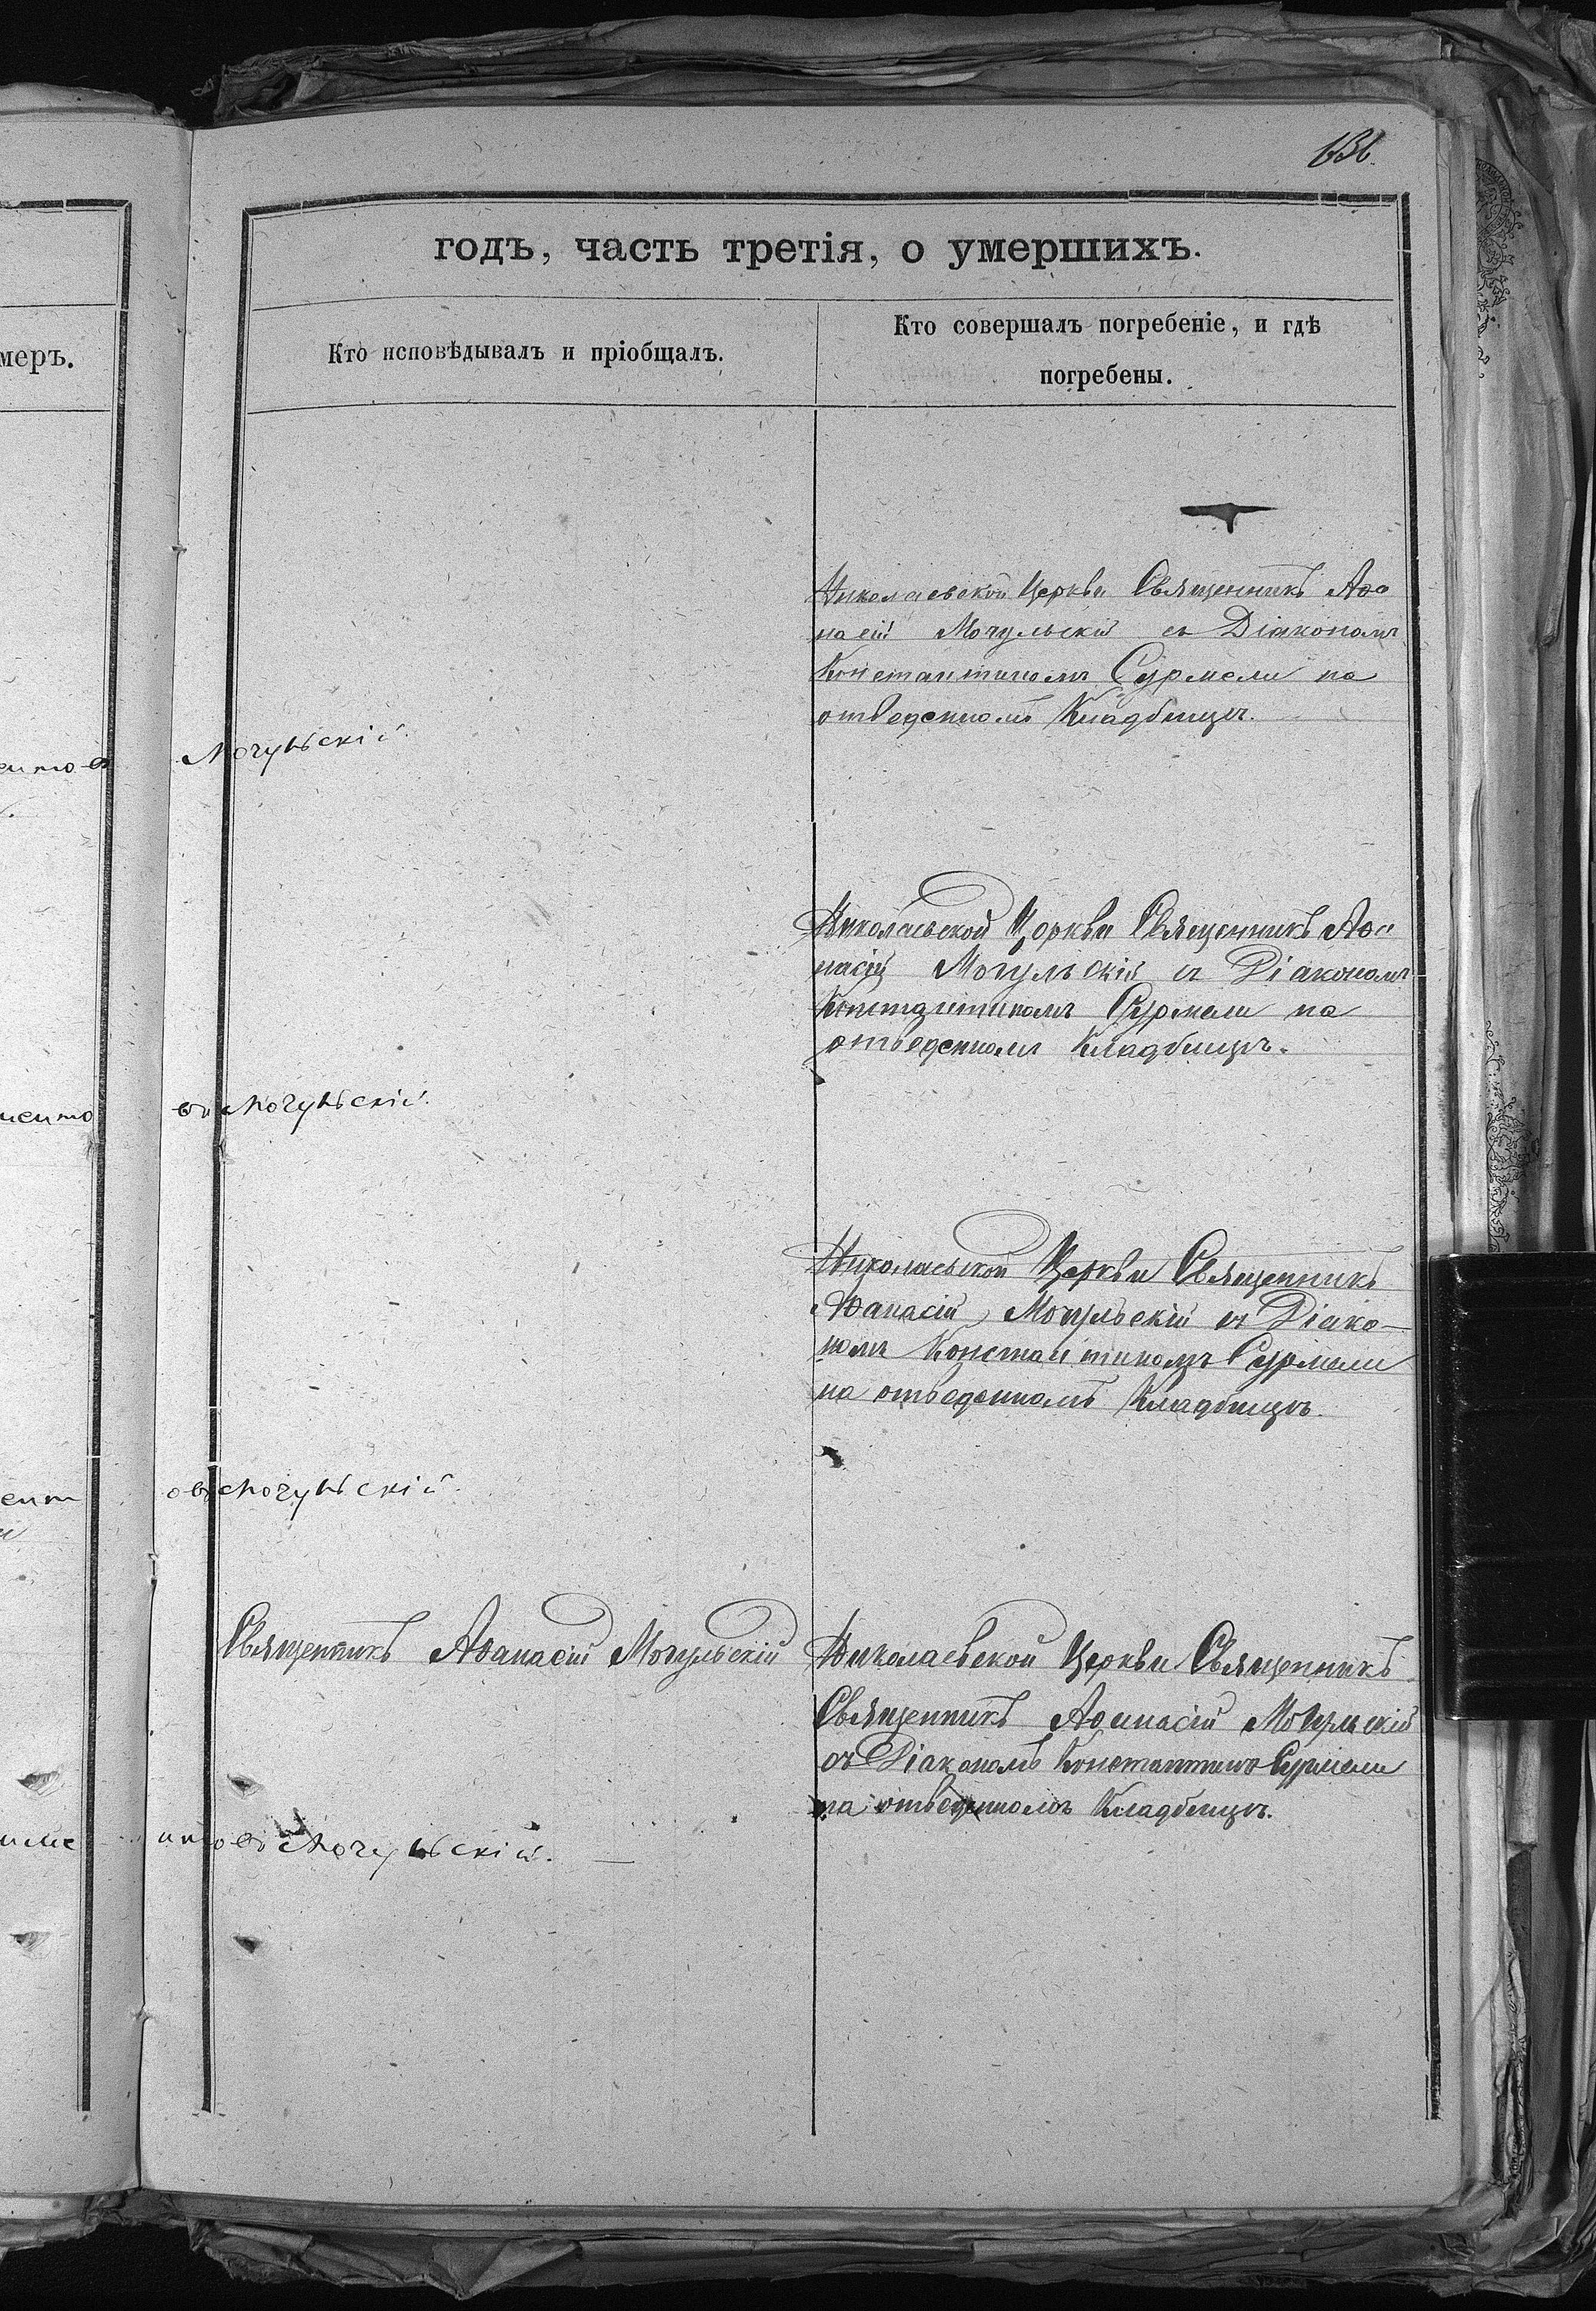 годъ, часть третія, о умершихъ.
меръ.
Кто исповѣдывалъ и пріобщалъ.
Кто совершалъ погребеніе, и гдѣ
погребены.
Николаевской Церкви Священникъ Аѳа
насій Мочульскій съ Діакономъ
Константиномъ Сурмели на
отведенномъ Кладбищѣ.
Мочульскій.
Николаевской Церкви Священникъ Аѳа
насій Мочульскій съ Діакономъ
Константиномъ Сурмели на
отведенномъ Кладбищѣ.
Мочульскій.
Николаевской Церкви Священникъ
Аѳанасій Мочульскій съ Діако-
номъ Константиномъ Сурмели
на отведенномъ Кладбищѣ.
Мочульскій.
Священникъ Аѳанасій Мочульскій
Николаевской Церкви Священникъ
Священникъ Аѳанасій Мочульскій
съ Діакономъ Константино Сурмели
на отведенномъ Кладбищѣ.
Мочульскій.